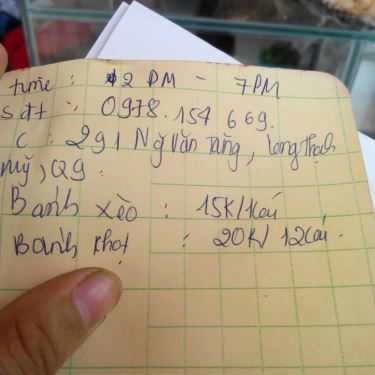 time : 2 PM - 7PM
sđt : 0978.157 669.
c : 291 Ng Văn Tăng, Long Thạnh
Mỹ, Q9.
Bánh xèo : 15K/1cái
Bánh khọt : 20K/12cái.